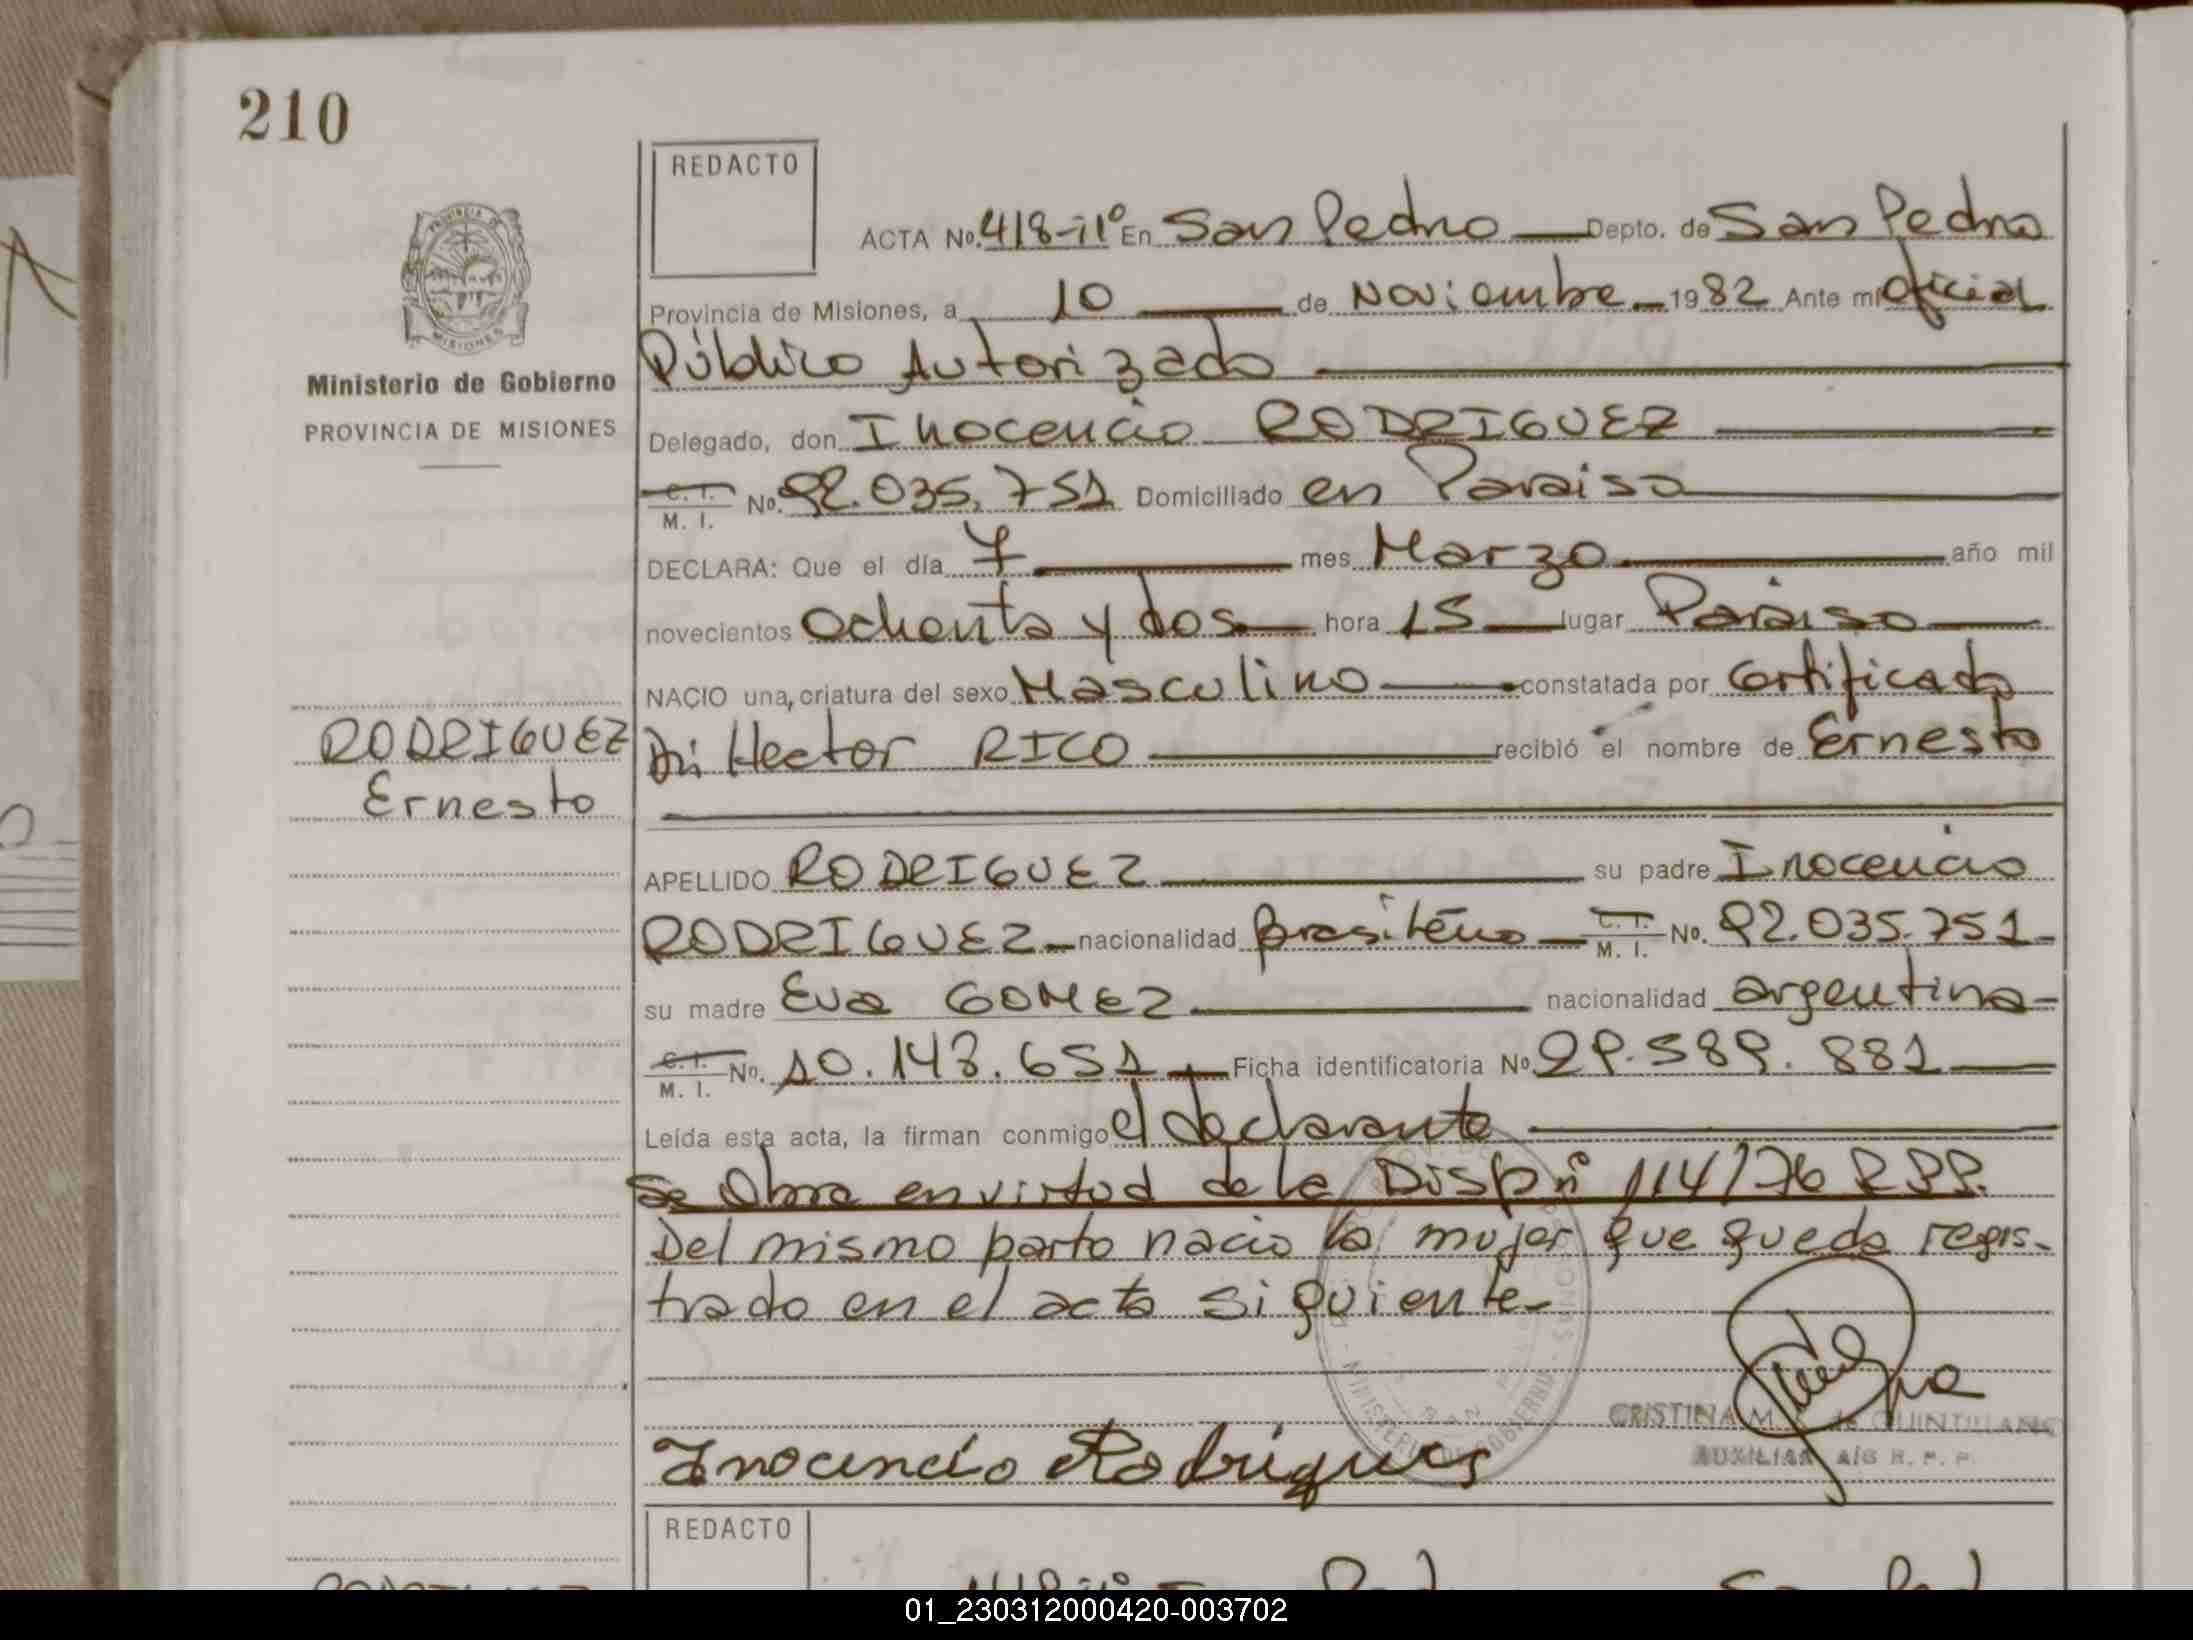 210
REDACTO
ACTA No. 418-II° En San Pedro Depto. de San Pedro
PROVINCIA DE
MISIONES
Provincia de Misiones, a 10 de Noviembre 1982 Ante mi oficial
Ministerio de Gobierno
Público Autorizado
PROVINCIA DE MISIONES
Delegado, don Inocencio RODRIGUEZ
C. I. M. I. No. 92.035.751 Domiciliado en Paraiso
DECLARA: Que el día 7 mes Marzo año mil
novecientos ochenta y dos hora 15 lugar Paraiso
NACIO una, criatura del sexo Masculino constatada por Certificado
RODRIGUEZ
Ernesto
Dr. Hector RICO recibió el nombre de Ernesto
APELLIDO RODRIGUEZ su padre Inocencio
RODRIGUEZ nacionalidad brasileño C. I. M. I. No. 92.035.751
su madre Eva GOMEZ nacionalidad argentina
C. I. M. I. No. 10.143.651 Ficha identificatoria No. 29.589.881
Leída esta acta, la firman conmigo el declarante
Se Obra en virtud de la Disp n° 114/76 RPP.
Del mismo parto nacio la mujer que queda regis-
trado en el acta siguiente-
CRISTINA M. de QUINTILLANO
AUXILIAR A/C R. P. P.
MINISTERIO DE GOBIERNO
Inocencio Rodrigues
REDACTO
01_230312000420-003702